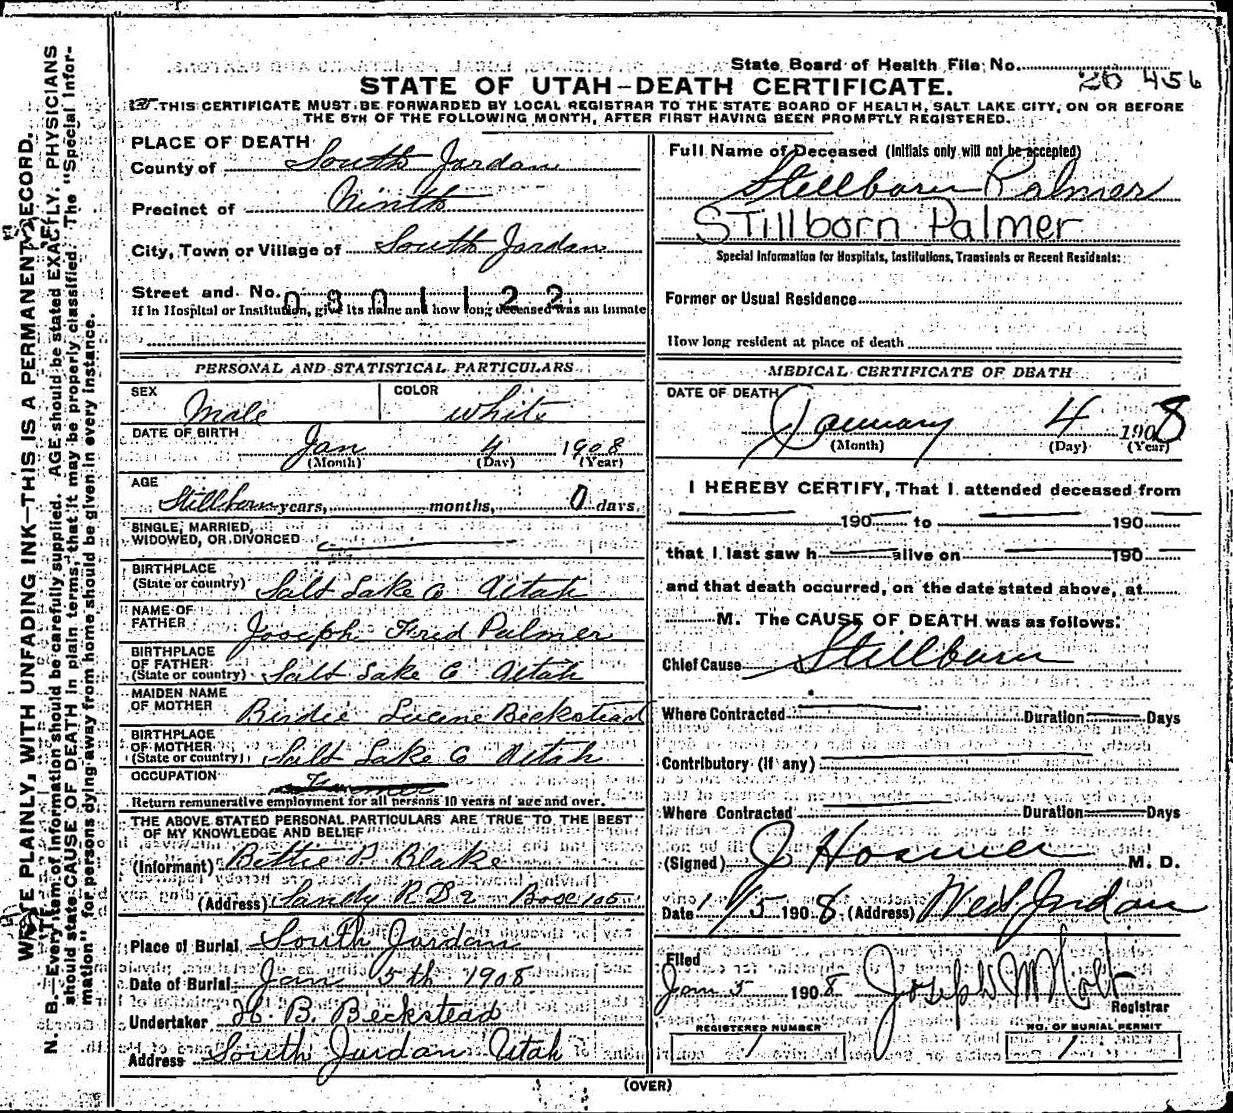 State Board of Health File No. 26 456
STATE OF UTAH—DEATH CERTIFICATE.
THIS CERTIFICATE MUST BE FORWARDED BY LOCAL REGISTRAR TO THE STATE BOARD OF HEALTH, SALT LAKE CITY, ON OR BEFORE
THE 5TH OF THE FOLLOWING MONTH, AFTER FIRST HAVING BEEN PROMPTLY REGISTERED.
WRITE PLAINLY, WITH UNFADING INK—THIS IS A PERMANENT RECORD.
N. B.—Every item of information should be carefully supplied. AGE should be stated EXACTLY. PHYSICIANS
should state CAUSE OF DEATH in plain terms, that it may be properly classified. The "Special Infor-
mation" for persons dying away from home should be given in every instance.
PLACE OF DEATH
County of South Jordan
Precinct of Ninth
City, Town or Village of South Jordan
Street and No. 0801122
If in Hospital or Institution, give its name and how long deceased was an inmate
PERSONAL AND STATISTICAL PARTICULARS
SEX Male COLOR White
DATE OF BIRTH Jan 4 1908
(Month) (Day) (Year)
AGE
Stillborn years, months, 0 days
SINGLE, MARRIED,
WIDOWED, OR DIVORCED
BIRTHPLACE
(State or country) Salt Lake Co Utah
NAME OF
FATHER Joseph Fred Palmer
BIRTHPLACE
OF FATHER
(State or country) Salt Lake Co Utah
MAIDEN NAME
OF MOTHER Birdie Lucine Beckstead
BIRTHPLACE
OF MOTHER
(State or country) Salt Lake Co Utah
OCCUPATION Farmer
Return remunerative employment for all persons 10 years of age and over.
THE ABOVE STATED PERSONAL PARTICULARS ARE TRUE TO THE BEST
OF MY KNOWLEDGE AND BELIEF
(Informant) Bettie P Blake
(Address) Sandy R.D 2 Box 105
Place of Burial South Jordan
Date of Burial Jan 5th 1908
Undertaker H. B. Beckstead
Address South Jordan Utah
Full Name of Deceased (Initials only will not be accepted)
Stillborn Palmer
STillborn Palmer
Special Information for Hospitals, Institutions, Transients or Recent Residents:
Former or Usual Residence
How long resident at place of death
MEDICAL CERTIFICATE OF DEATH
DATE OF DEATH
January 4 1908
(Month) (Day) (Year)
I HEREBY CERTIFY, That I attended deceased from
190 to 190
that I last saw h alive on 190
and that death occurred, on the date stated above, at
M. The CAUSE OF DEATH was as follows:
Chief Cause Stillborn
Where Contracted Duration Days
Contributory (if any)
Where Contracted Duration Days
(Signed) J Hosmer M. D.
Date 1/5 1908. (Address) West Jordan
Filed
Jan 5 1908. Joseph M Holt
Registrar
REGISTERED NUMBER
1
NO. OF BURIAL PERMIT
1
(OVER)